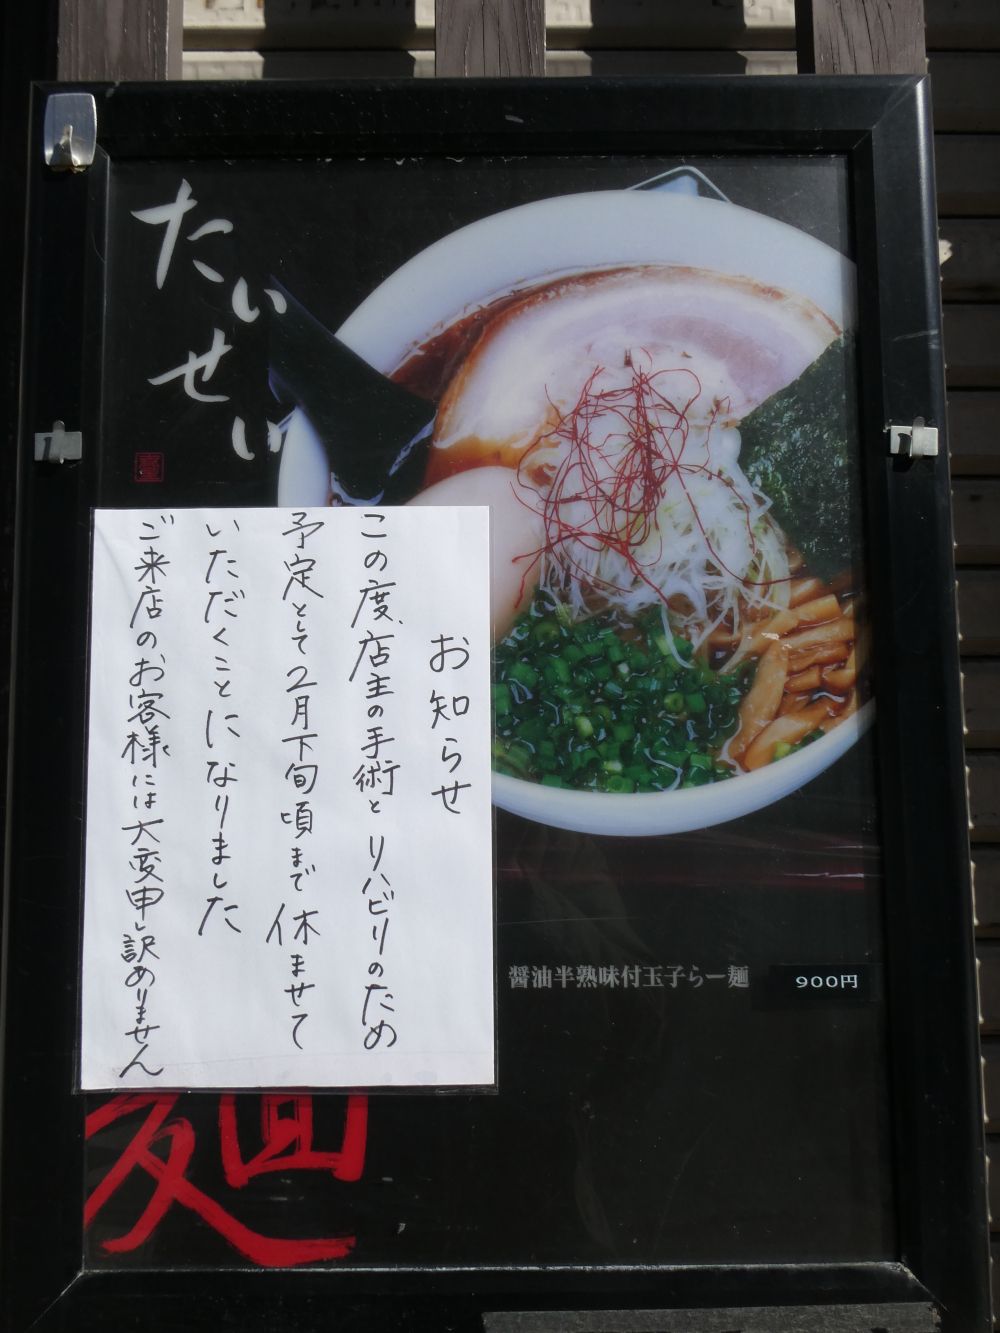 たいせい
お知らせ
この度、店主の手術とリハビリのため
予定として2月下旬頃まで休ませて
いただくことになりました
ご来店のお客様には大変申し訳ありません
醤油半熟味付玉子らー麺
900円